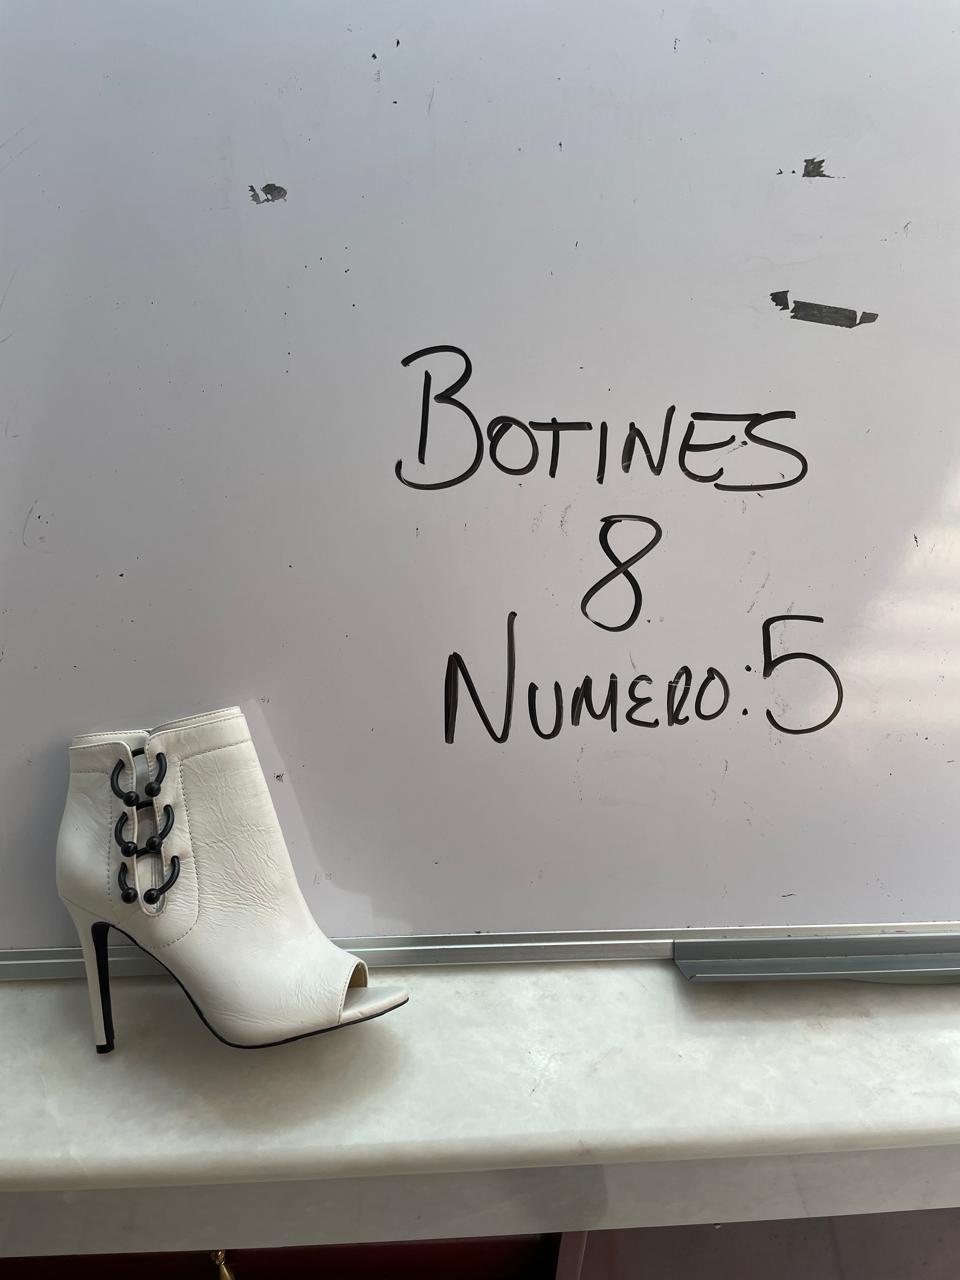 BOTINES
8
NUMERO:5